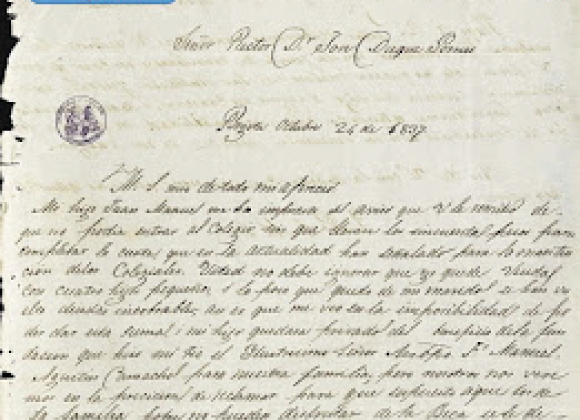 Señor Rector Dr José Duque Gómez
Bogotá Octubre 24 de 1837
M. S. mio de todo mi aprecio
Mi hijo Juan Manuel me ha impuesto del aviso que V. le remitió de
que no podia entrar al Colegio sin que llevara los cincuenta pesos para
completar la cuota, que en la actualidad han señalado para la manten
cion de los Colegiales. Usted no debe ignorar que yo quedé viuda,
con cuatro hijos pequeños, i lo poco que quedó de mi marido se ha vu
elto deudas incobrables, asi es que me veo en la imposibilidad de po
der dar esta suma i mi hijo quedará privado del beneficio de la fun
dacion que hizo mi tio el Illustrisimo Señor Arzobpo Dr Manuel
Agustin Camacho para nuestra familia, pero nosotros nos vere
mos en la precision de reclamar para que supuesto aquel
la familia pobre no puede disfrutar de la Beca